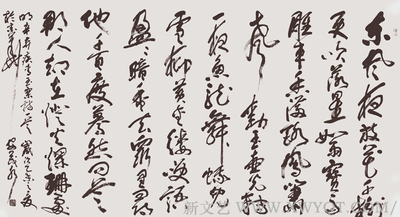 东风夜放花千树
更吹落星如雨宝马
雕车香满路凤箫
声动玉壶光转
一夜鱼龙舞蛾儿
雪柳黄金缕笑语
盈盈暗香去众里寻
他千百度蓦然回首
那人却在灯火阑珊处
新文艺